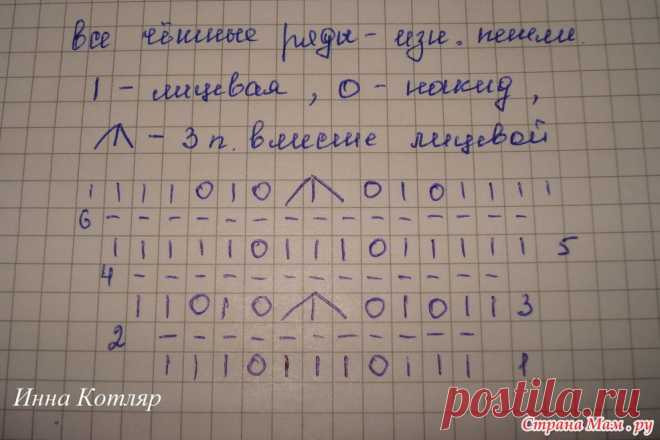 Все чётные ряды - изн. петли.
| - лицевая, О - накид,
/|\ - 3 п. вместе лицевой
| | | | O | O /|\ O | O | | | |
6 - - - - - - - - - - - - - - -
| | | | | O | | | O | | | | | 5
4 - - - - - - - - - - - - -
| | O | O /|\ O | O | | 3
2 - - - - - - - - - - -
| | | O | | | O | | | 1
Инна Котляр
postila.ru
Страна Мам.ру